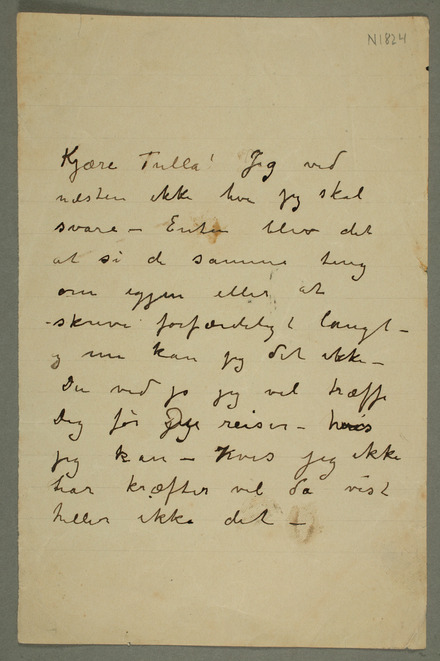 N1824
Kjære Tulla! Jeg ved
næsten ikke hva jeg skal
svare – Enten blir det
at si de samme ting
om igjen eller at
skrive forfærdeligt langt –
og nu kan jeg det ikke –
Du ved jo jeg vil træffe
Dig før reiser –
jeg kan – Hvis jeg ikke
har kræfter vil da vist
heller ikke det –